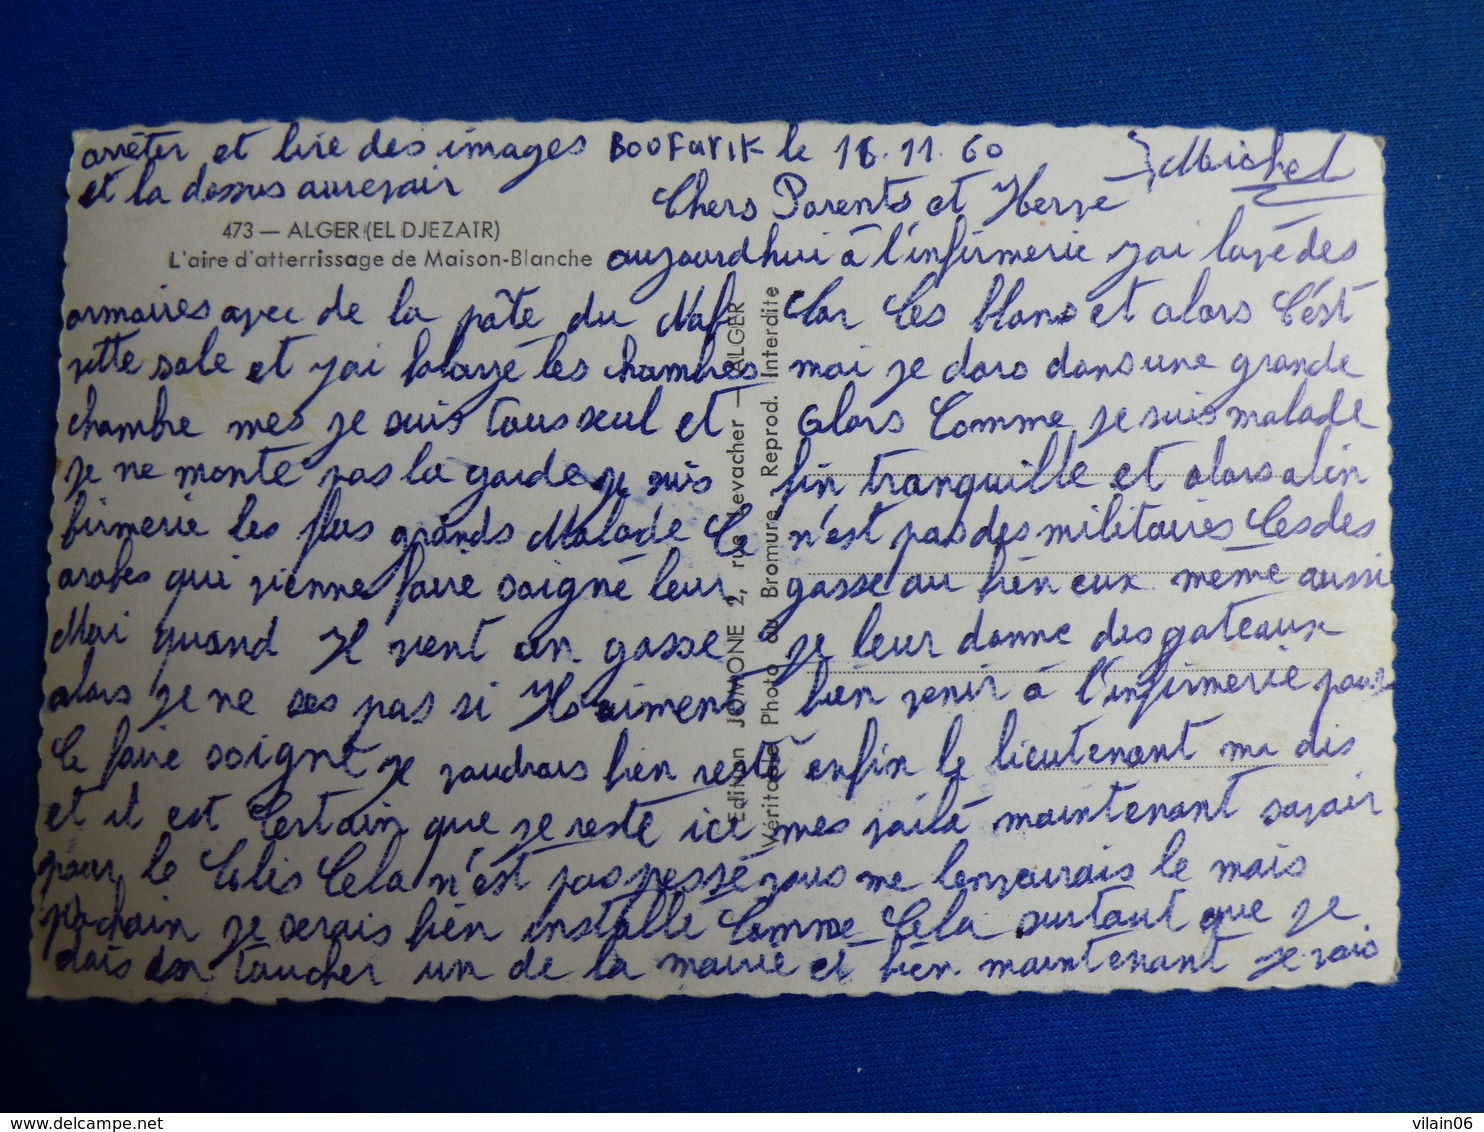 arrêter et lire des images
et la dessus aurevoir
BOUFARIK le 18.11.60
Michel
Chers Parents et Herve
473 — ALGER (EL DJEZAÏR)
L'aire d'atterrissage de Maison-Blanche
aujourdhui à l'infirmerie jai lavé des
armaires avec de la pâte du Naf Car Ces blanset alors C'est
vitte sale et jai balayye les chambres moi je dors dans une grande
chambre mes je suis tous seul et alors Comme je suis malade
je ne monte pas la garde je suis bin tranquille et alors a lin
firmerie les plus grands Malade Ce n'est pas des militaires Ces des
arabes qui vienne faire soigné leur gasse au bien eux même aussi
Moi quand Il vient un gasse je leur donne des gateaux
alors je ne ses pas si Ils aiment bien venir à l'infirmerie pour
Ce faire soigné je voudrais bien resté enfin le lieutenant ma dis
et il est Certain que je reste ici mes voilà maintenant savair
pour le Colis Cela n'est pas pessé vous me lenvairais le mois
prochain je serais bien installé Comme Cela surtout que je
dois en toucher un de la mairie et bien maintenant je vais
Edition JOMONE 2, rue Levacher — ALGER
Véritable Photo au Bromure, Reprod. Interdite
delcampe.net
vilain06